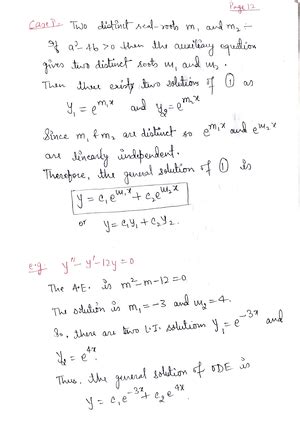 Page 12
Case I:- Two distinct real-roots m₁ and m₂ :-
If a²-4b>0 then the auxiliary equation
gives two distinct roots m₁ and m₂.
Then there exists two solution of ① as
y₁ = e^{m₁x} and y₂ = e^{m₂x}
Since m₁ & m₂ are distinct so e^{m₁x} and e^{m₂x}
are linearly independent.
Therefore, the general solution of ① is
y = c₁e^{m₁x} + c₂e^{m₂x}
or y = c₁y₁ + c₂y₂.
e.g. y″ - y′ - 12y = 0
The A.E. is m²-m-12=0
The solution is m₁ = -3 and m₂ = 4.
So, there are two L.I. solutions y₁ = e^{-3x} and
y₂ = e^{4x}.
Thus, the general solution of ODE is
y = c₁e^{-3x} + c₂e^{4x}.